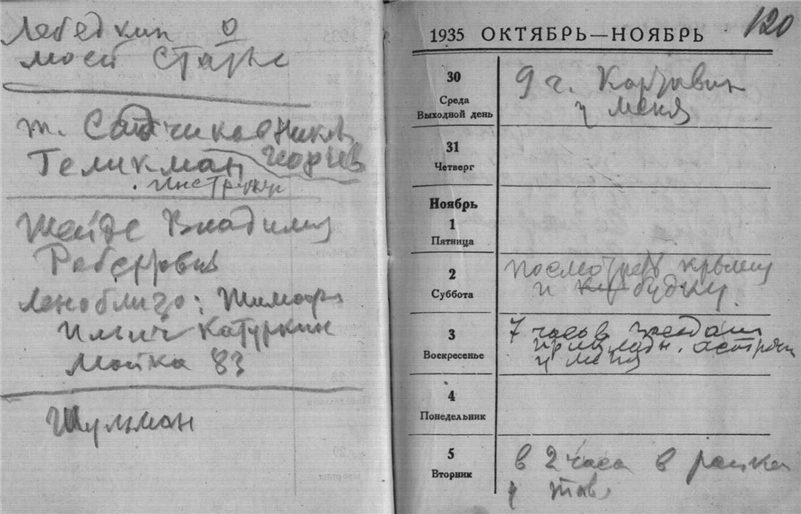 Лебедкин о
моей статье
т. Садчиков Никол.
Теликман Георгиев
инструкт
Шейде Владимир
Робертович
Леноблизо: Тимофе
Ильич Катуркин
Мойка 83
Шульман
120
1935 ОКТЯБРЬ—НОЯБРЬ
30
Среда
Выходной день
9 ч.
у меня
31
Четверг
Ноябрь
1
Пятница
2
Суббота
посмотреть крышу
и будку.
3
Воскресенье
7 часов заседан
прикладн. астроном
у меня
4
Понедельник
5
Вторник
в 2 часа в
у тов.